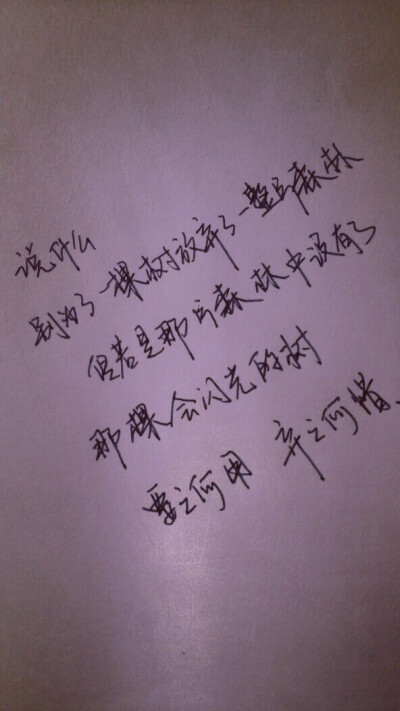 说什么
别为了一棵树放弃了一整片森林
但若是那片森林中没有了
那棵会闪光的树
要之何用 弃之何惜、